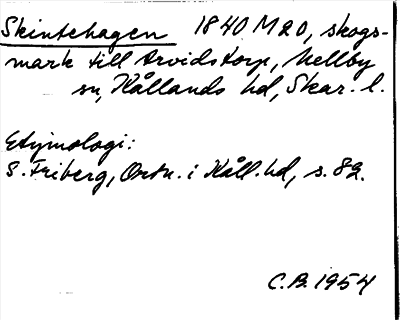 Skintehagen 1840 M20, skogs-
mark till Arvidstorp, Mellby
sn, Kållands hd, Skar. l.
Etymologi:
S. Friberg, Ortn. i Kåll. hd, s. 82.
C.B. 1954